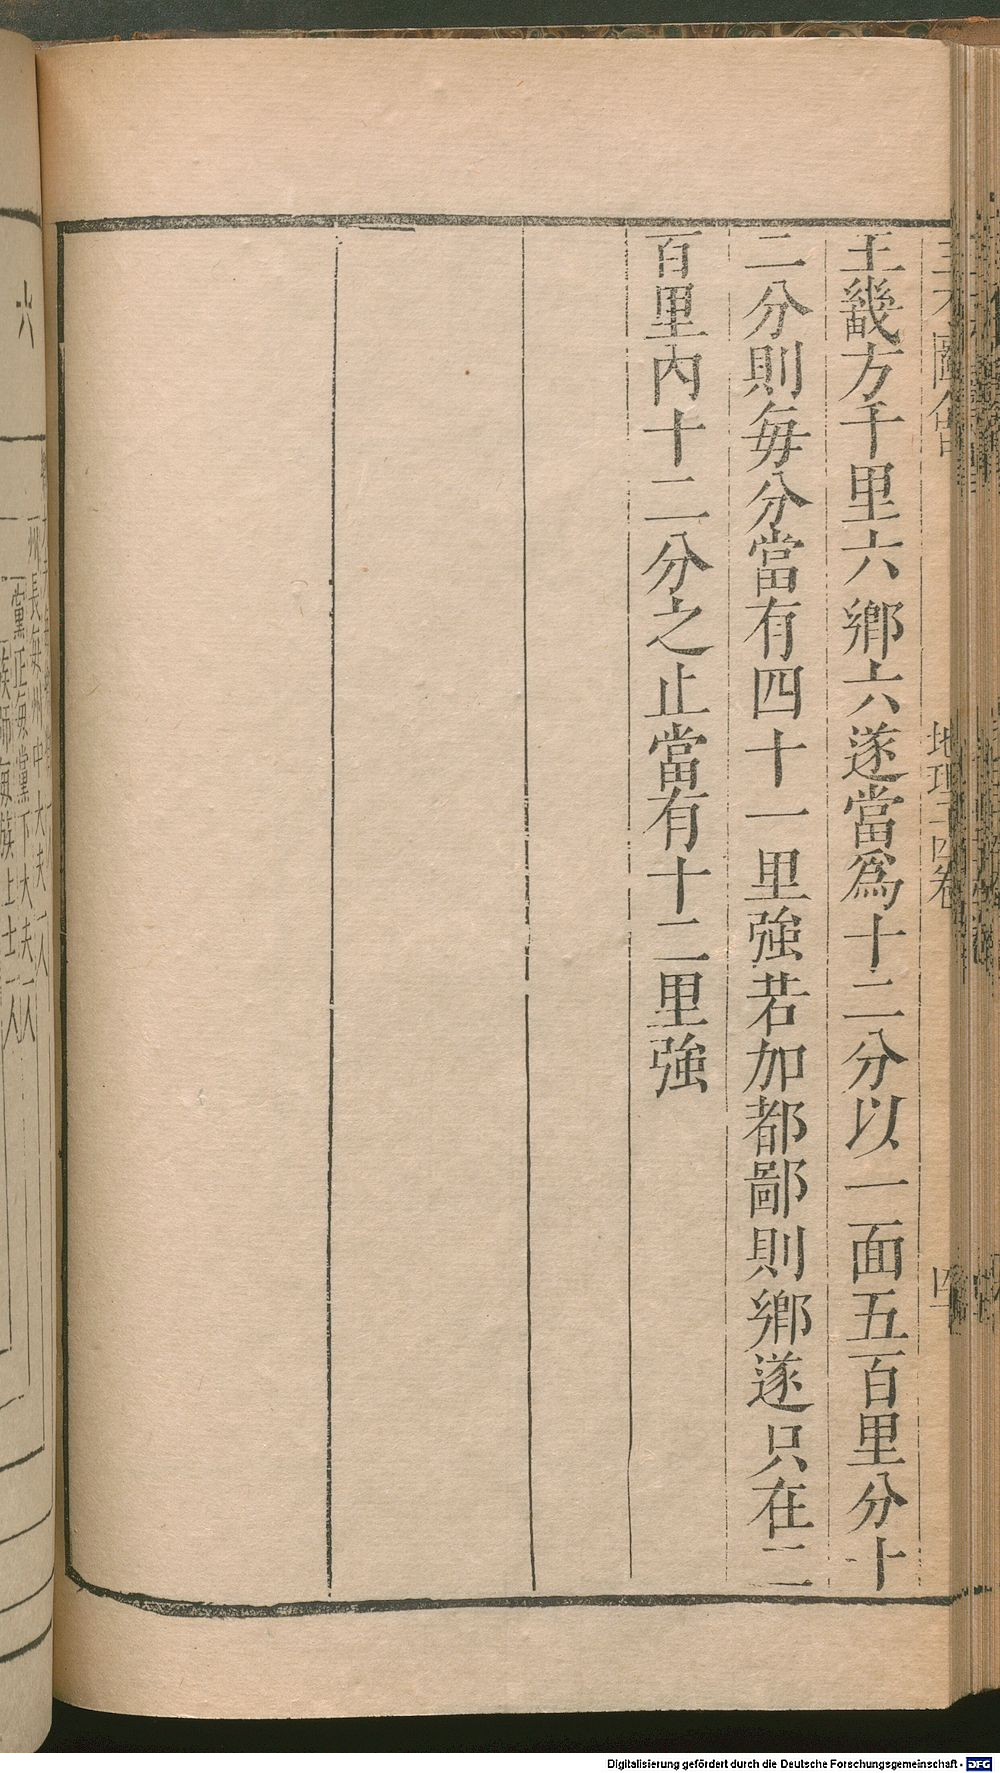 三才圖會
地理十四卷
王畿方千里六鄉六遂當爲十二分以一面五百里分十
二分則毎分當有四十一里強若加都鄙則鄉遂只在二
百里內十二分之止當有十二里強
六
州長每州中大夫一人
黨正每黨下大夫一人
族師每族上士一人
Digitalisierung gefördert durch die Deutsche Forschungsgemeinschaft - DFG